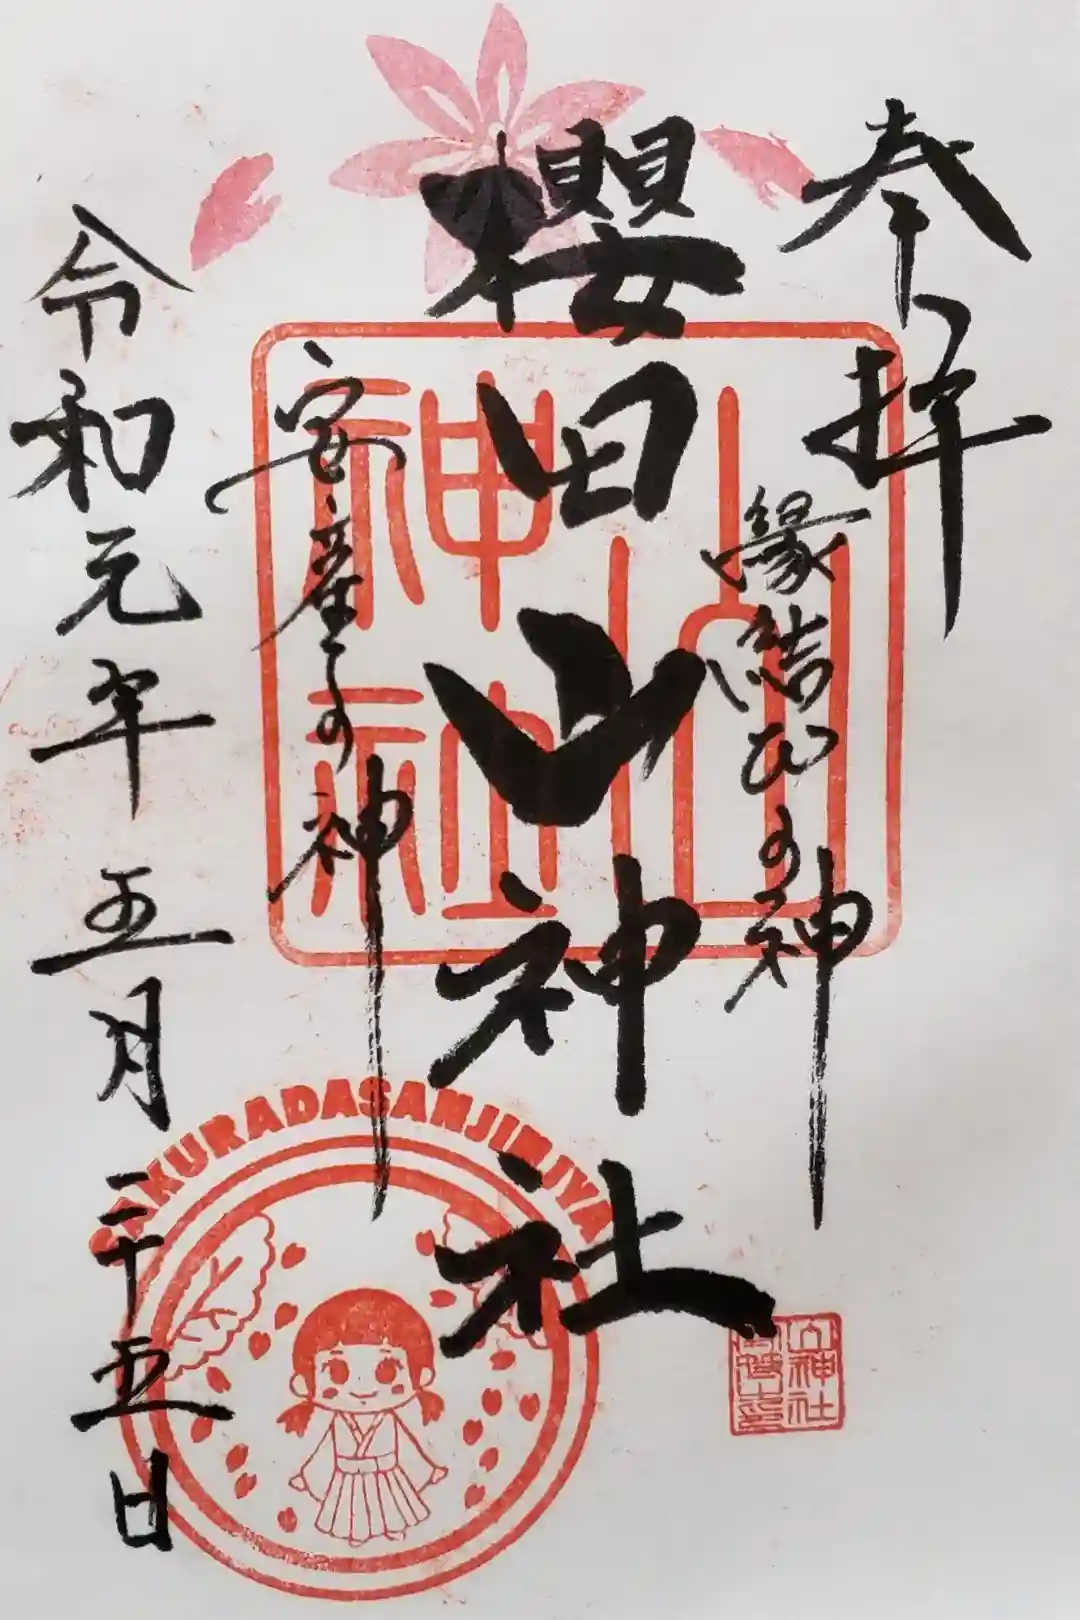 奉拝
縁結びの神
櫻田山神社
安産子の神
令和元年五月二十五日
山神社
SAKURADASANJINJYA